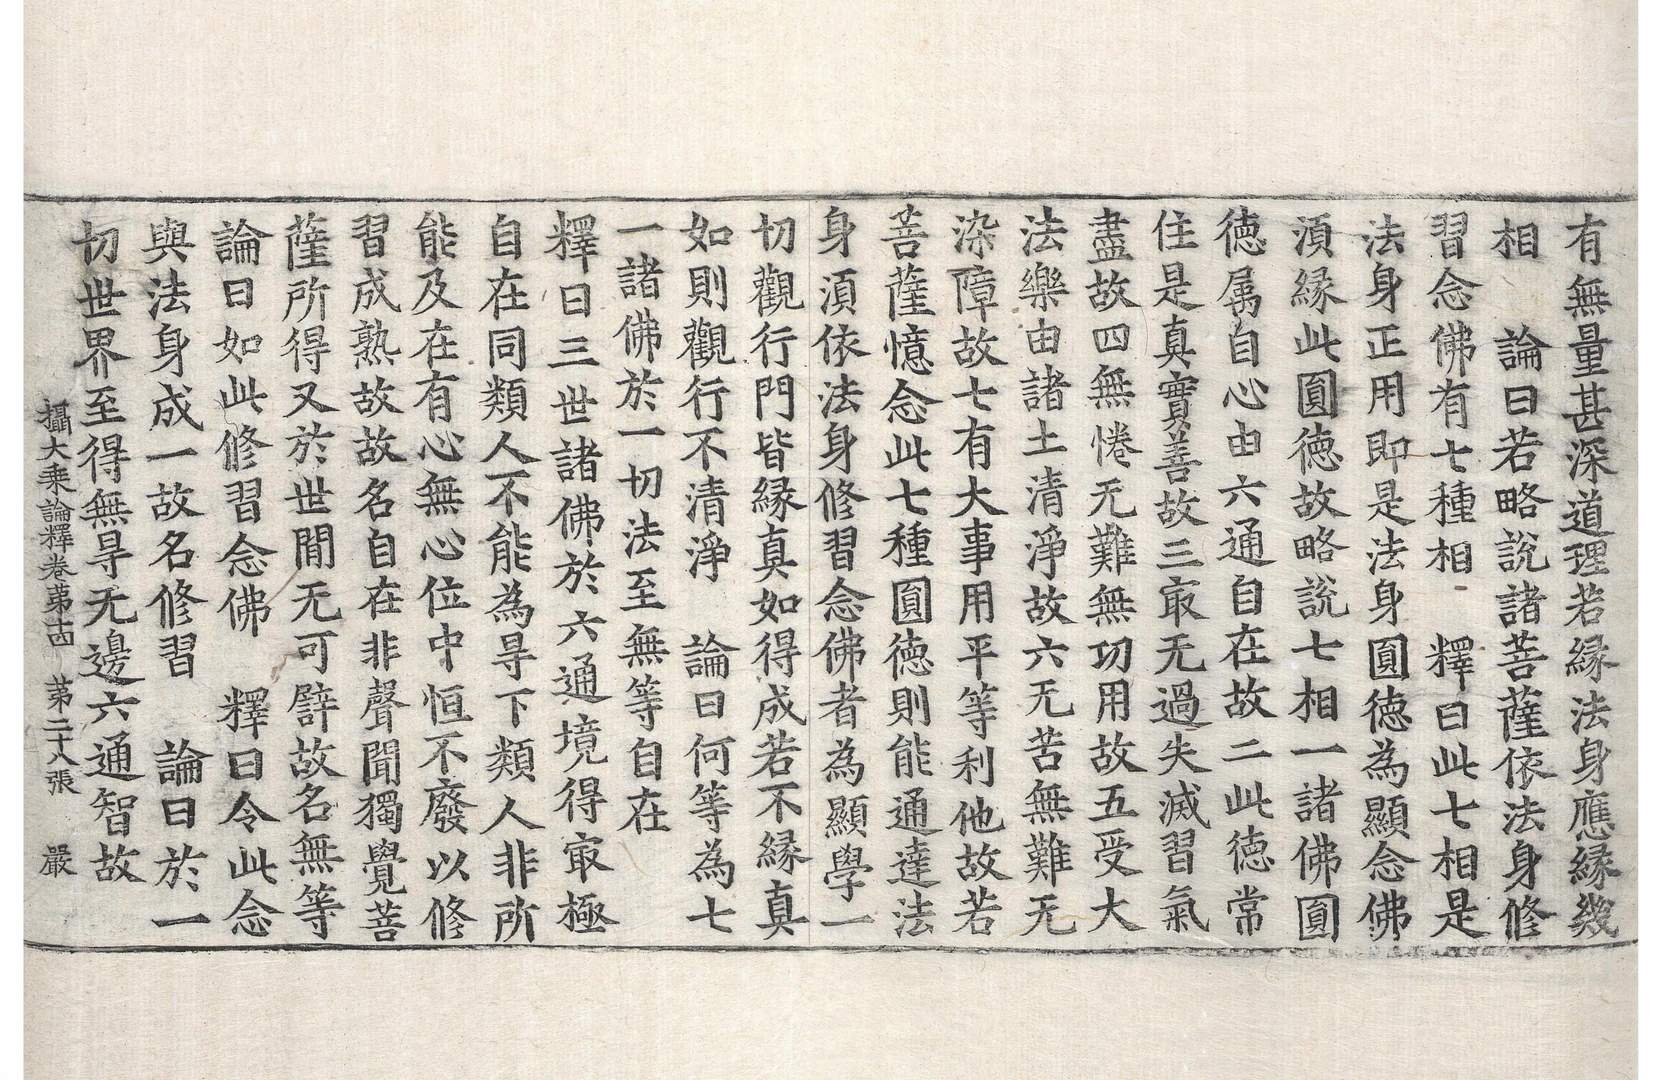 有無量甚深道理若縁法身應縁幾
相　論曰若略說諸菩薩依法身修
習念佛有七種相　釋曰此七相是
法身正用即是法身圓德為顯念佛
湏縁此圓德故略說七相一諸佛圓
德属自心由六通自在故二此德常
住是真實善故三㝡无過失滅習氣
盡故四無惓无難無功用故五受大
法樂由諸土清淨故六无苦無難无
染障故七有大事用平等利他故若
菩薩憶念此七種圓德則能通達法
身湏依法身修習念佛者為顯學一
切觀行門皆縁真如得成若不縁真
如則觀行不清淨　論曰何等為七
一諸佛於一切法至無等自在
釋曰三世諸佛於六通境得㝡極
自在同類人不能為㝵下類人非所
能及在有心無心位中恒不廢以修
習成熟故故名自在非聲聞獨覺菩
薩所得又於世間无可譬故名無等
論曰如此修習念佛　釋曰令此念
與法身成一故名修習　論曰於一
切世界至得無㝵无邊六通智故
攝大乘論釋卷苐十四　苐二十八張　嚴